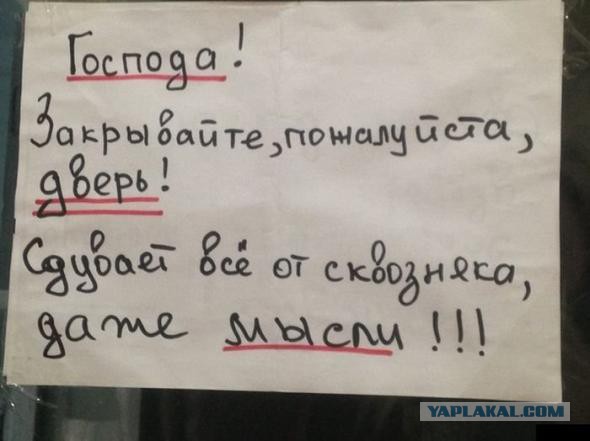 Господа!
Закрывайте, пожалуйста,
дверь!
Сдувает всё от сквозняка,
даже мысли!!!
YAPLAKAL.COM